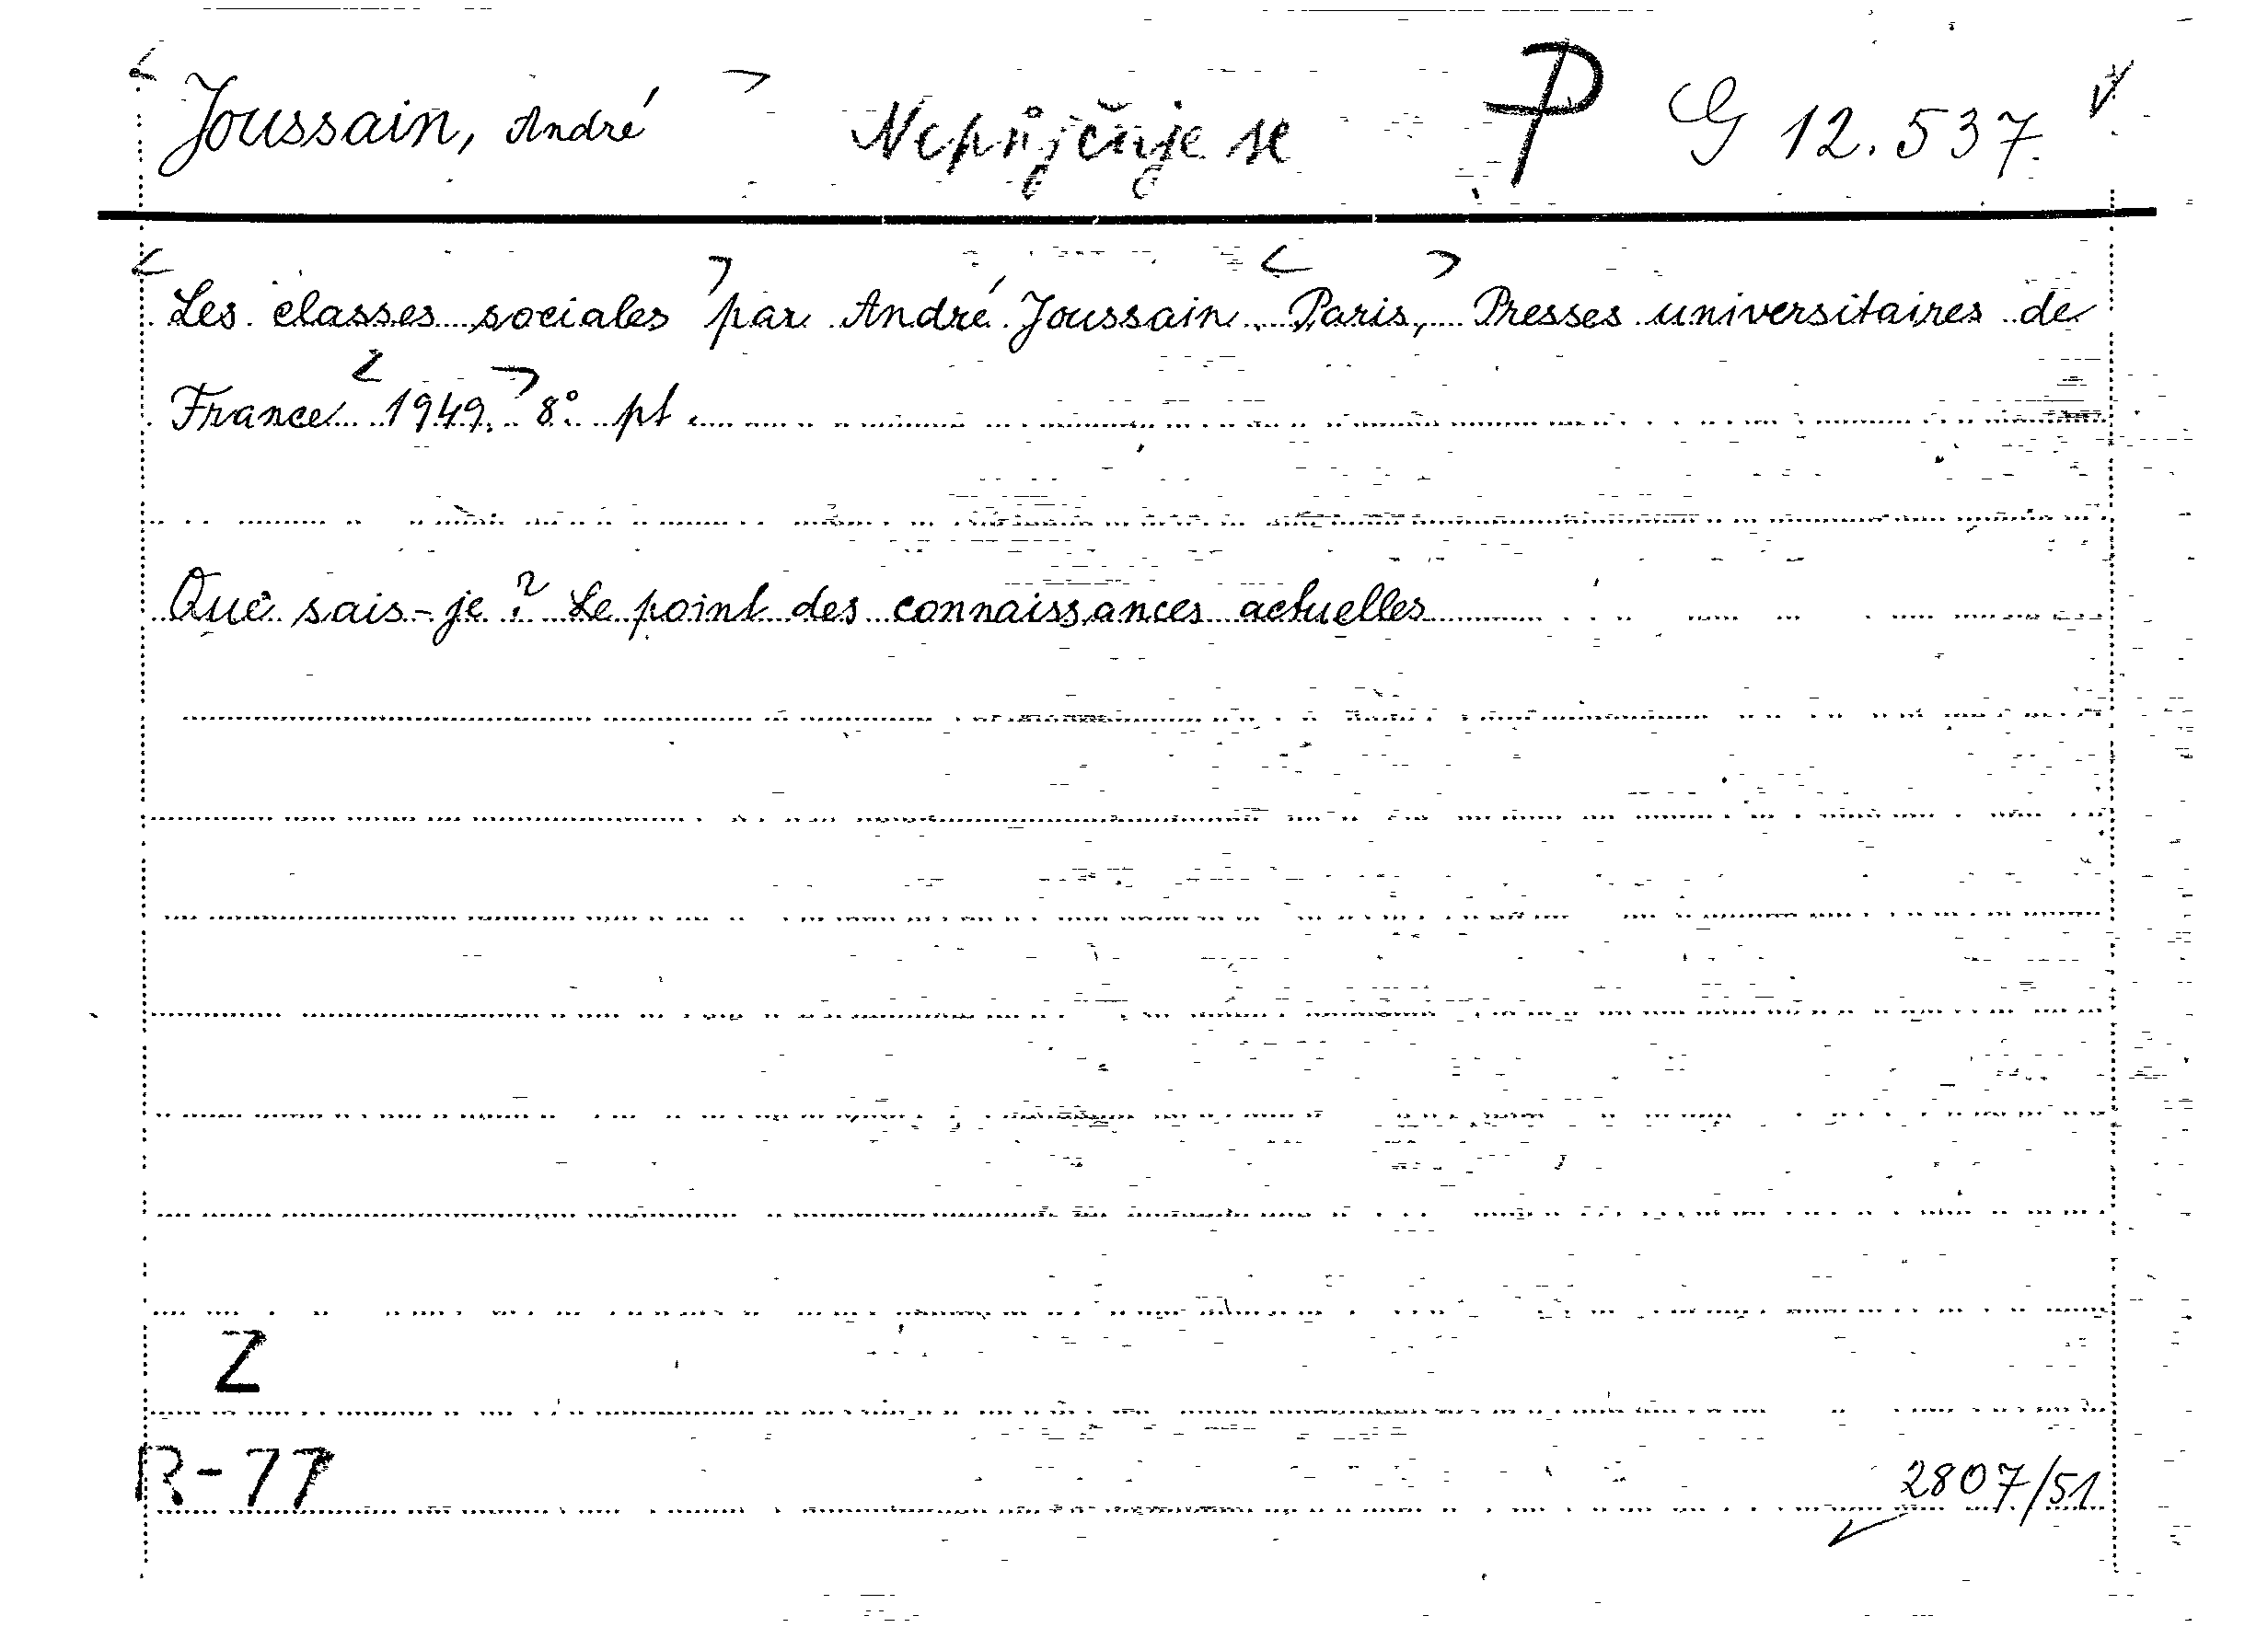 Joussain, André Nepůjčuje se P G 12.537
Les classes sociales par André Joussain. Paris, Presses universitaires de
France 1949. 8° pt.
Que sais-je? Le point des connaissances actuelles
Z
R-77
2807/51